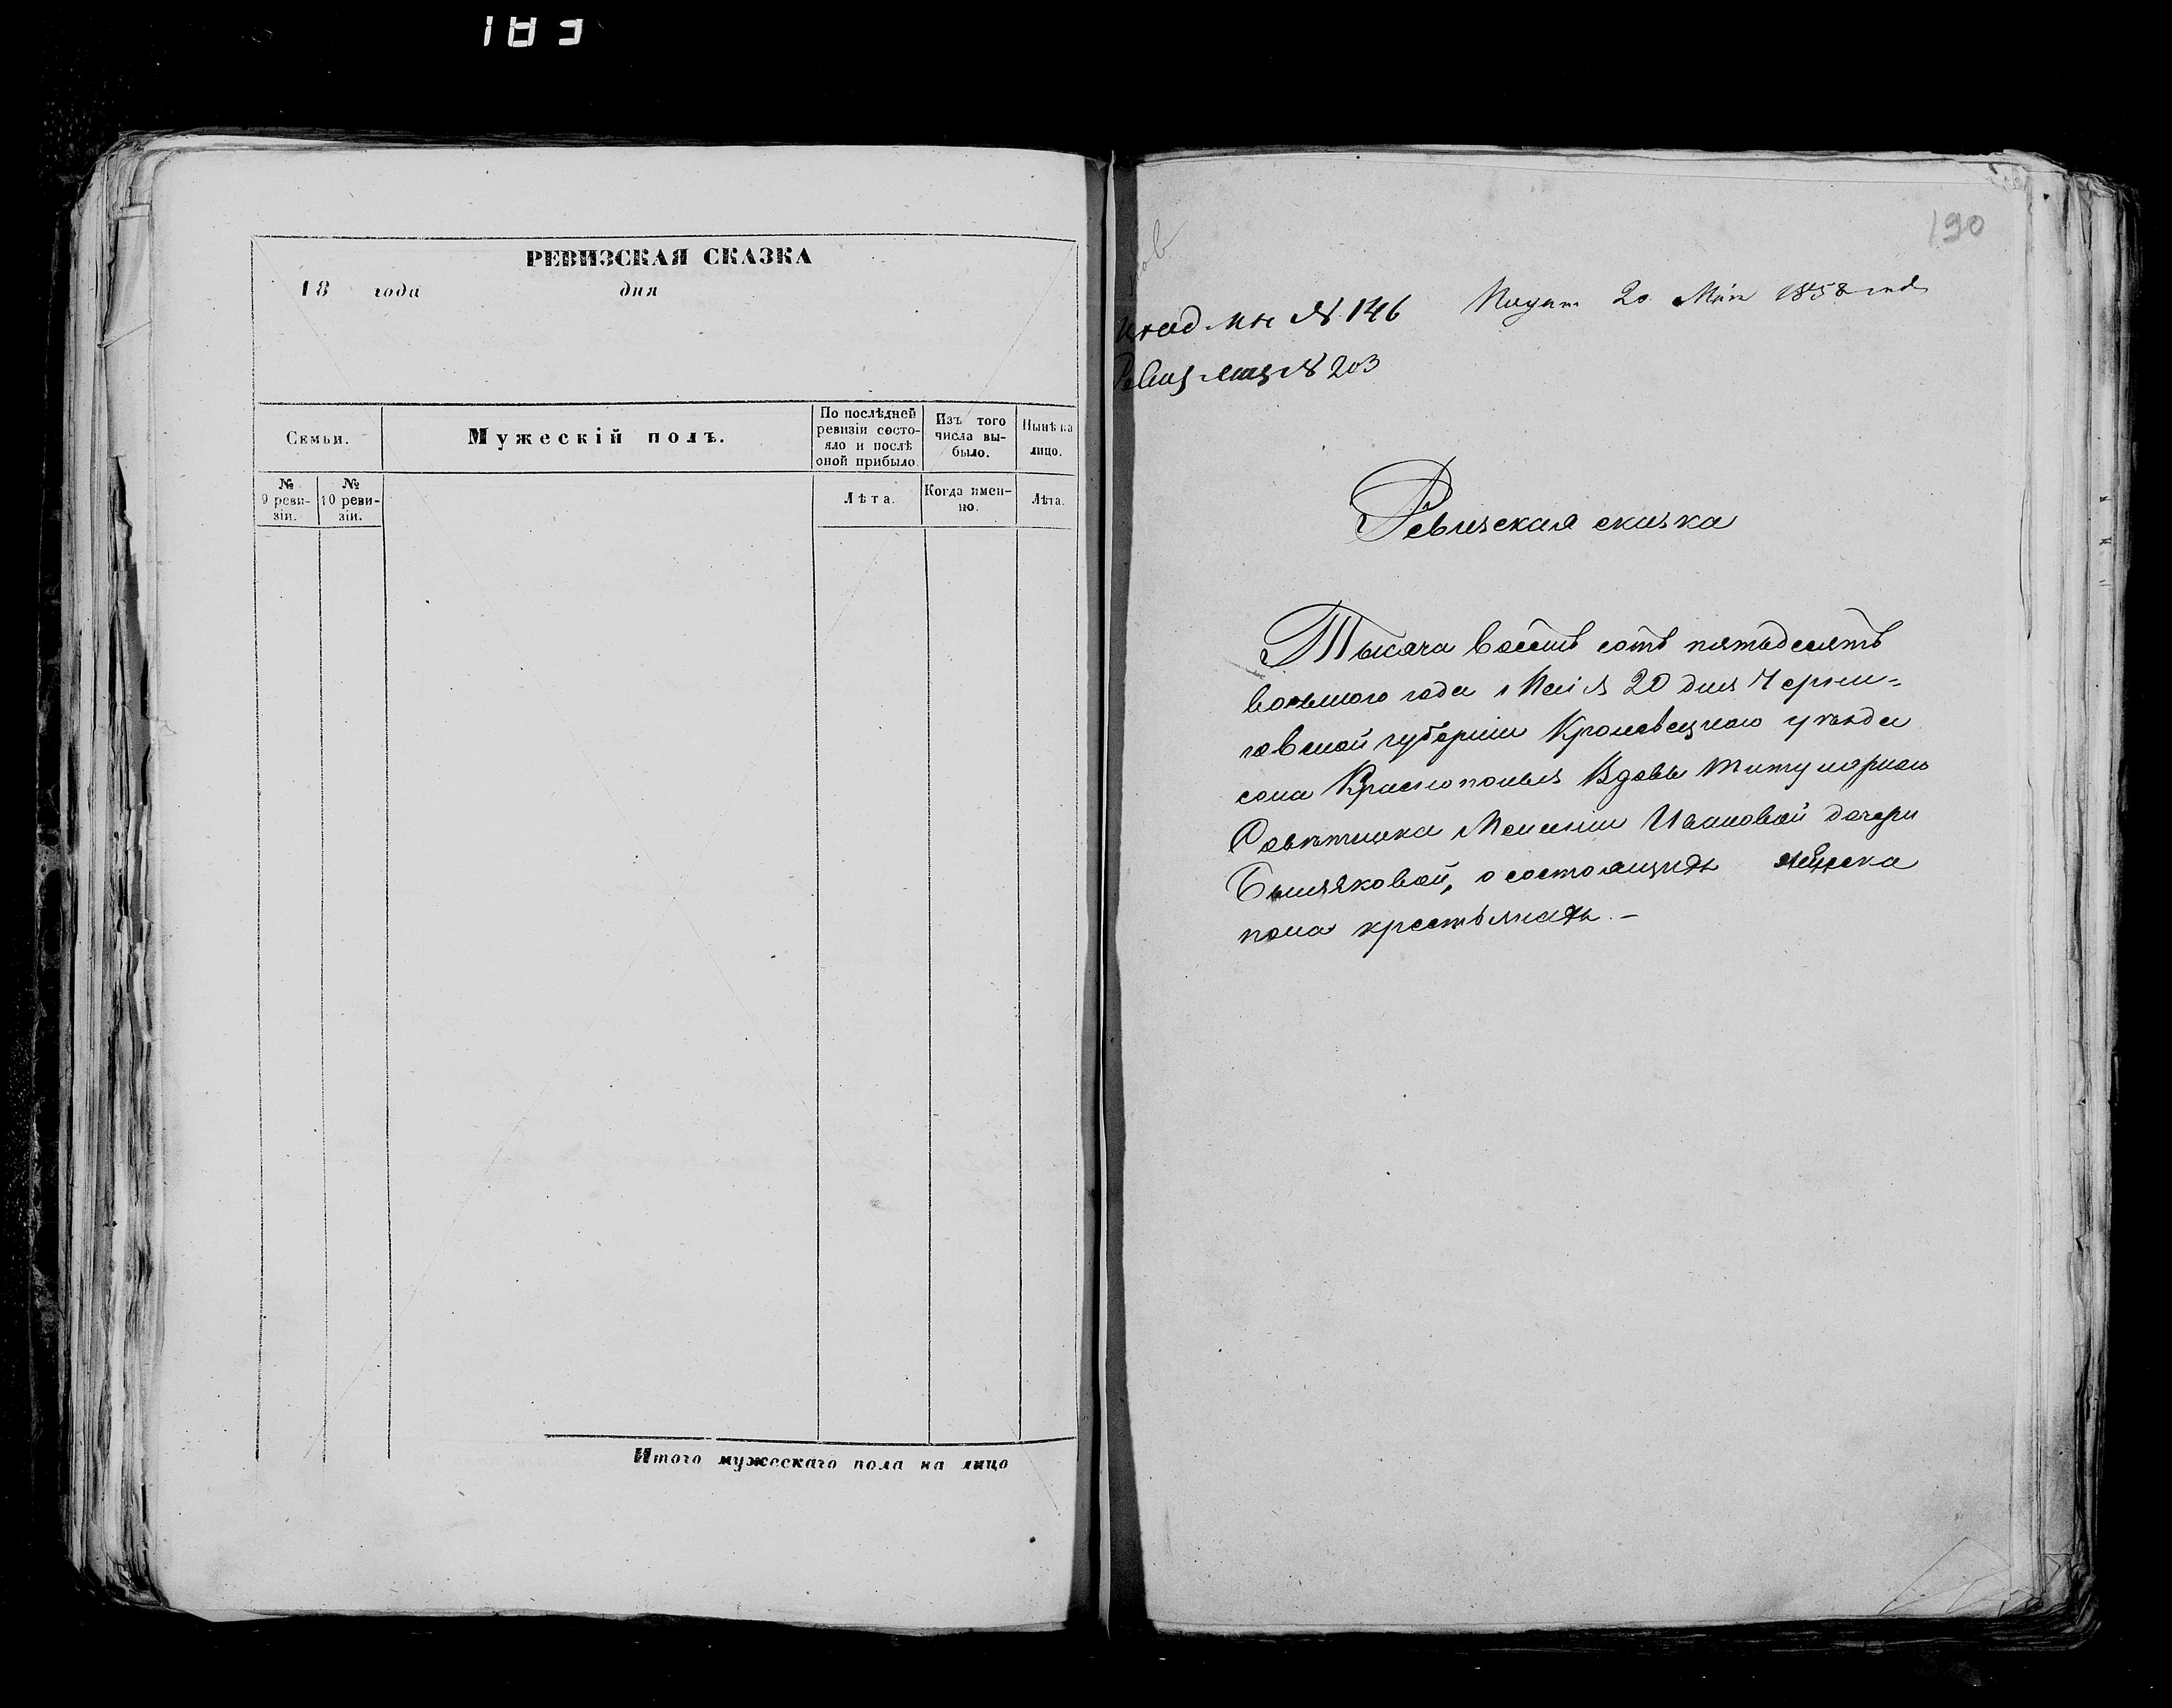 183
РЕВИЗСКАЯ СКАЗКА
18 года дня
Семьи.
Мужескій полъ.
По послѣдней
ревизіи состо-
яло и послѣ
оной прибыло.
Изъ того
числа вы-
было.
Нынѣ на
лицо.
№
9 реви-
зіи.
№
10 реви-
зіи.
Лѣта.
Когда имен-
но.
Лѣта.
Итого мужескаго пола на лицо
190
№ 146
20 Мая 1858 года
№ 203
Ревизская сказка
Тысяча восемь сотъ пятьдесятъ
восьмого года Маія 20 дня Черни-
говской губерніи Кролевецкаго уѣзда
села Краснополья Вдовы Титулярнаго
Совѣтника Меланіи Ивановой дочери
о состоящихъ мужеска
пола крестьянахъ. —